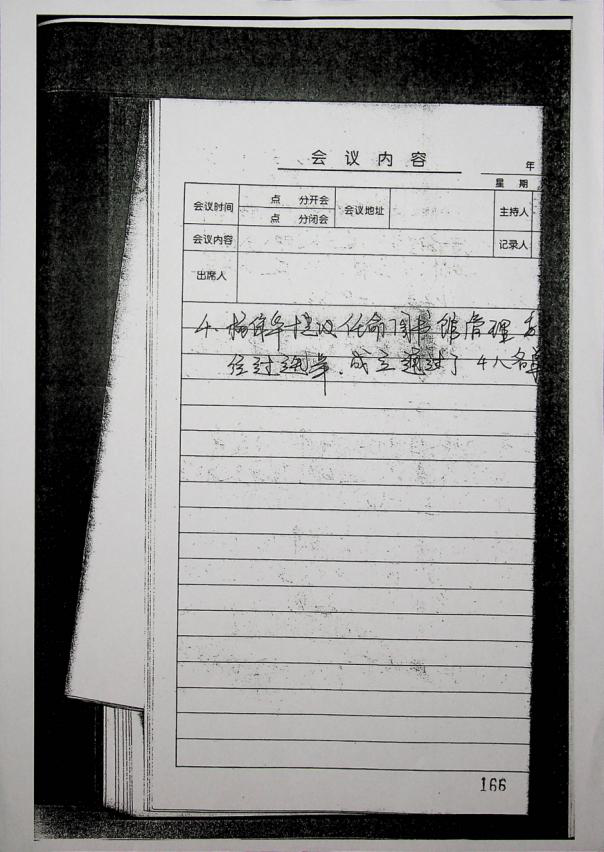 会议内容
年
星 期
会议时间
点 分开会
点 分闭会
会议地址
主持人
会议内容
记录人
出席人
4. 杨 建议任命图书馆管理
经过选举，成立通过了4人名单
166